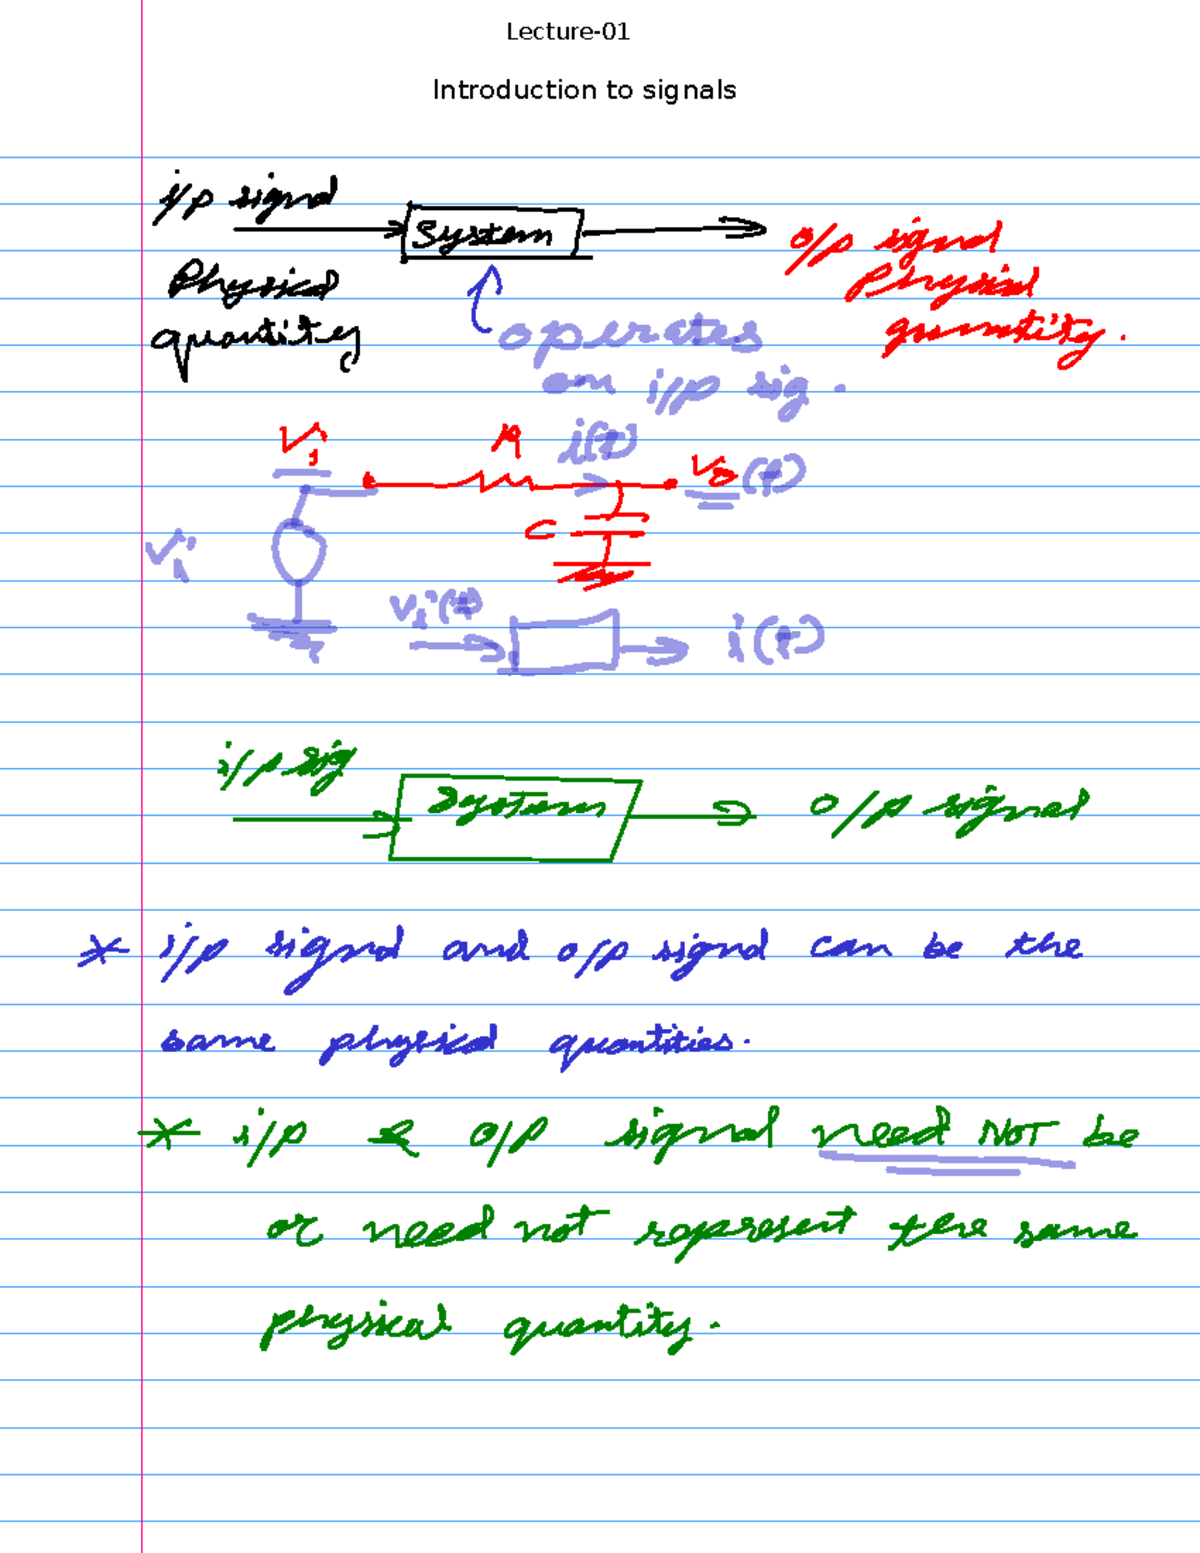 Lecture-01
Introduction to signals
i/p signal
System
o/p signal
Physical
Physical
quantity
quantity.
operates
on i/p sig.
R
i(t)
Vo(t)
C
Vi
Vi(t)
i(t)
i/p sig
System
o/p signal
* i/p signal and o/p signal can be the
same physical quantities.
* i/p & o/p signal need NOT be
or need not represent the same
physical quantity.